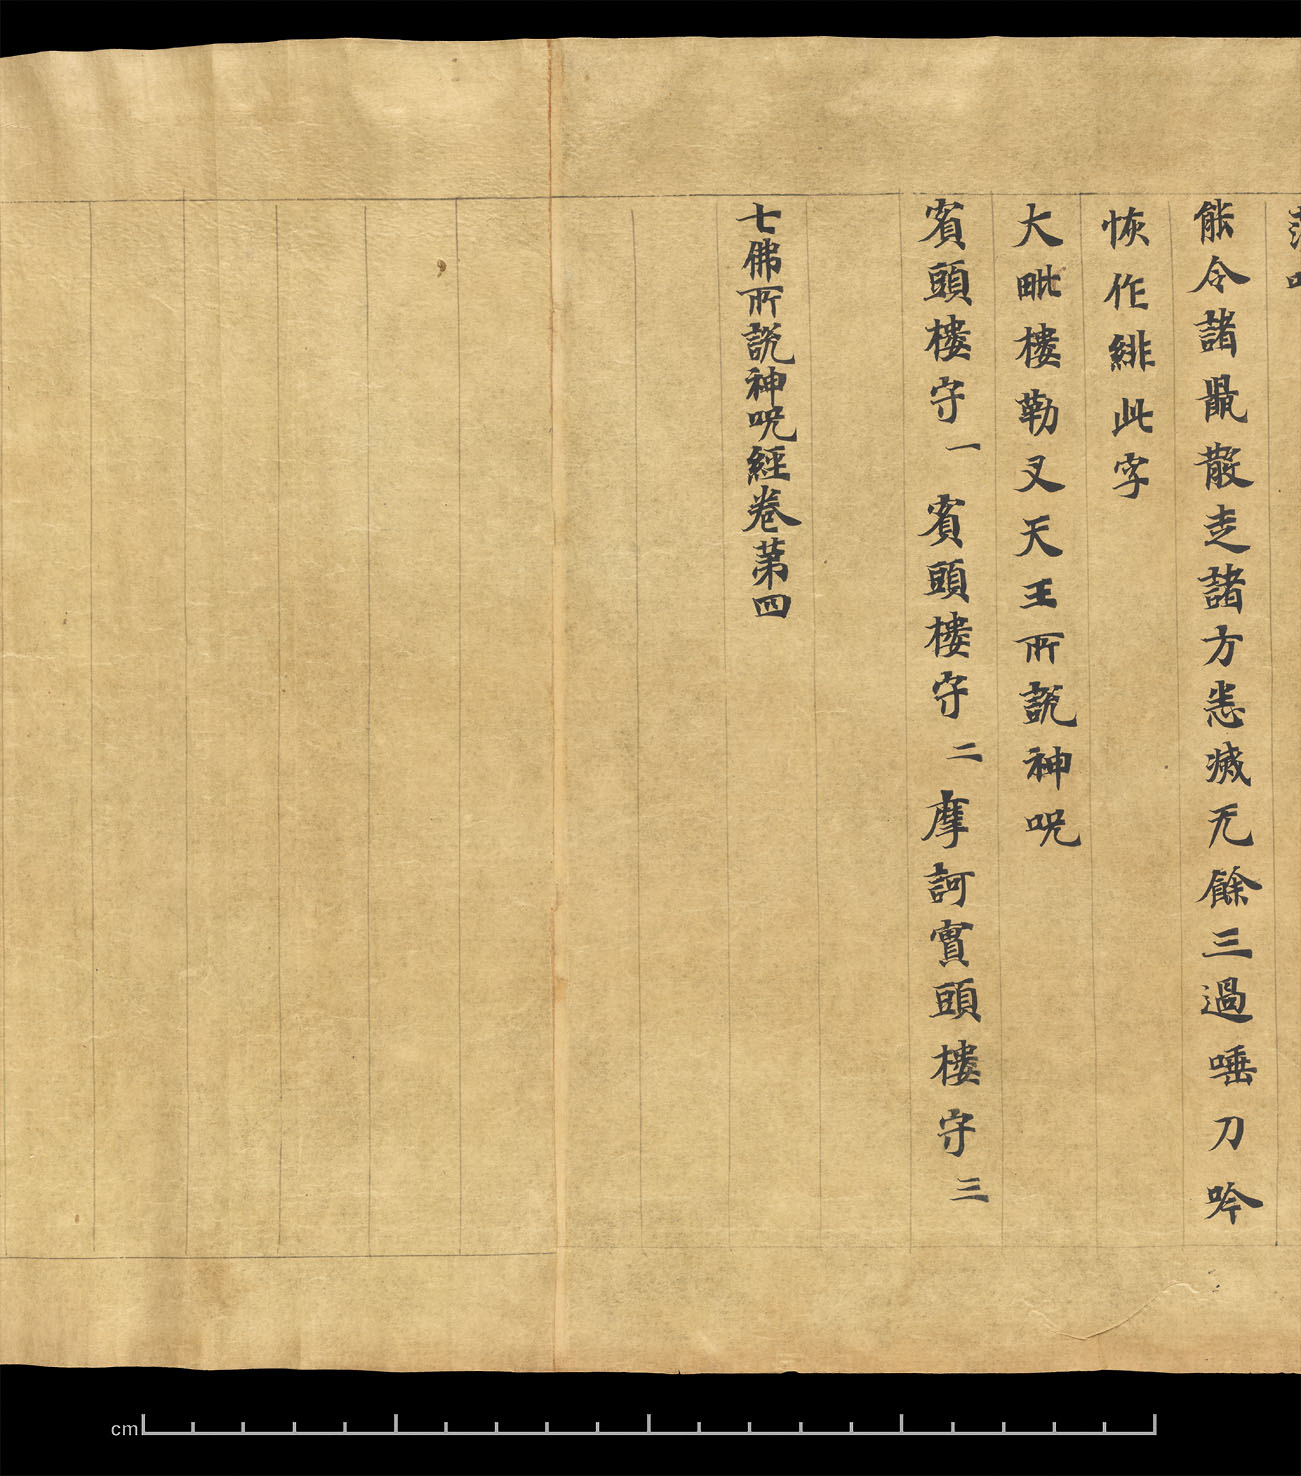 能令諸鼠散走諸方悉滅无餘三過唾刀吟
恢作緋此字
大毗樓勒叉天王所說神呪
賓頭樓守一 賓頭樓守二 摩訶實頭樓守三
七佛所說神呪經卷第四
cm